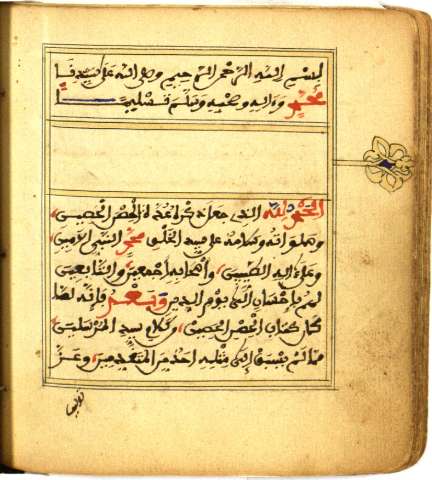 بسم الله الرحمن الرحيم وصلى الله على سيدنا
محمد وءاله وصحبه وسلم تسليما
الحمد لله الذي جعل ذكره عدة الحصن الحصين
وصلواته وسلامه على سيد الخلق محمد النبي الامين
وعلى ءاله الطيبين واصحابه اجمعين والتابعين
لهم بإحسان الى يوم الدين وبعد فإنه لما
كان كتاب الحصن الحصين من كلام سيد المرسلين
مما لم يسبق إلى مثله احد من المتقدمين وعز